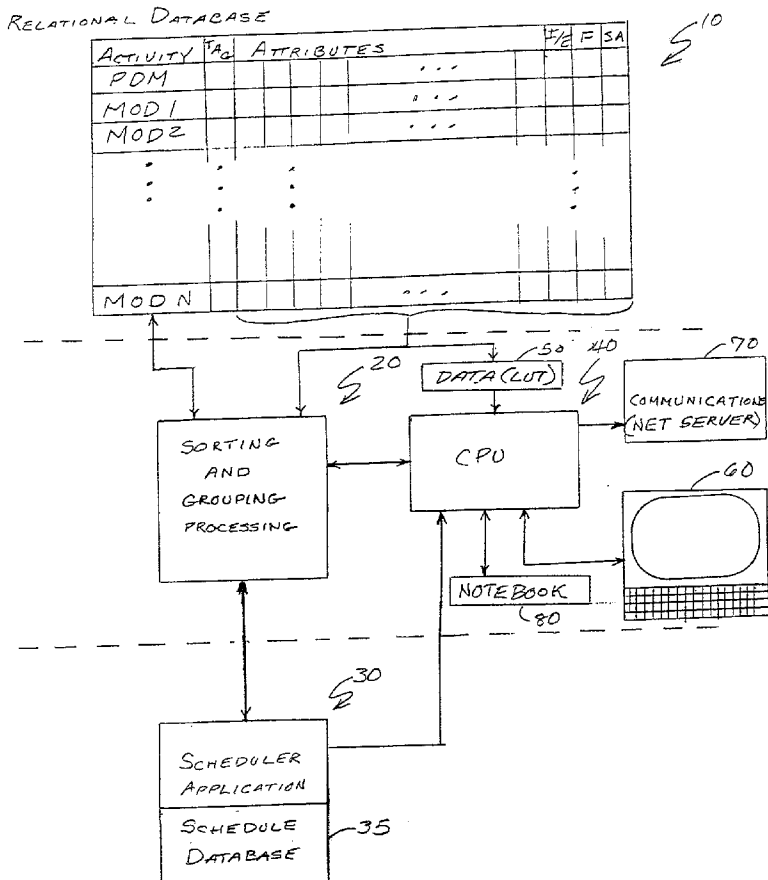 RELATIONAL DATABASE
10
ACTIVITY TAG ATTRIBUTES I/E F SA
PDM
MOD1
MOD2
MOD N
50
40
70
20
DATA (LUT)
COMMUNICATIONS
(NET SERVER)
SORTING
AND
GROUPING
PROCESSING
CPU
60
NOTEBOOK
80
30
SCHEDULER
APPLICATION
SCHEDULE
DATABASE
35